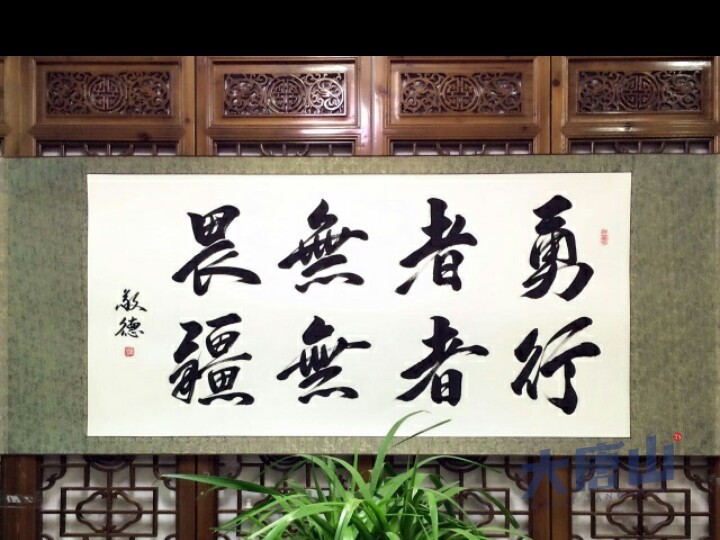 勇者無畏
行者無疆
敬德
大唐山